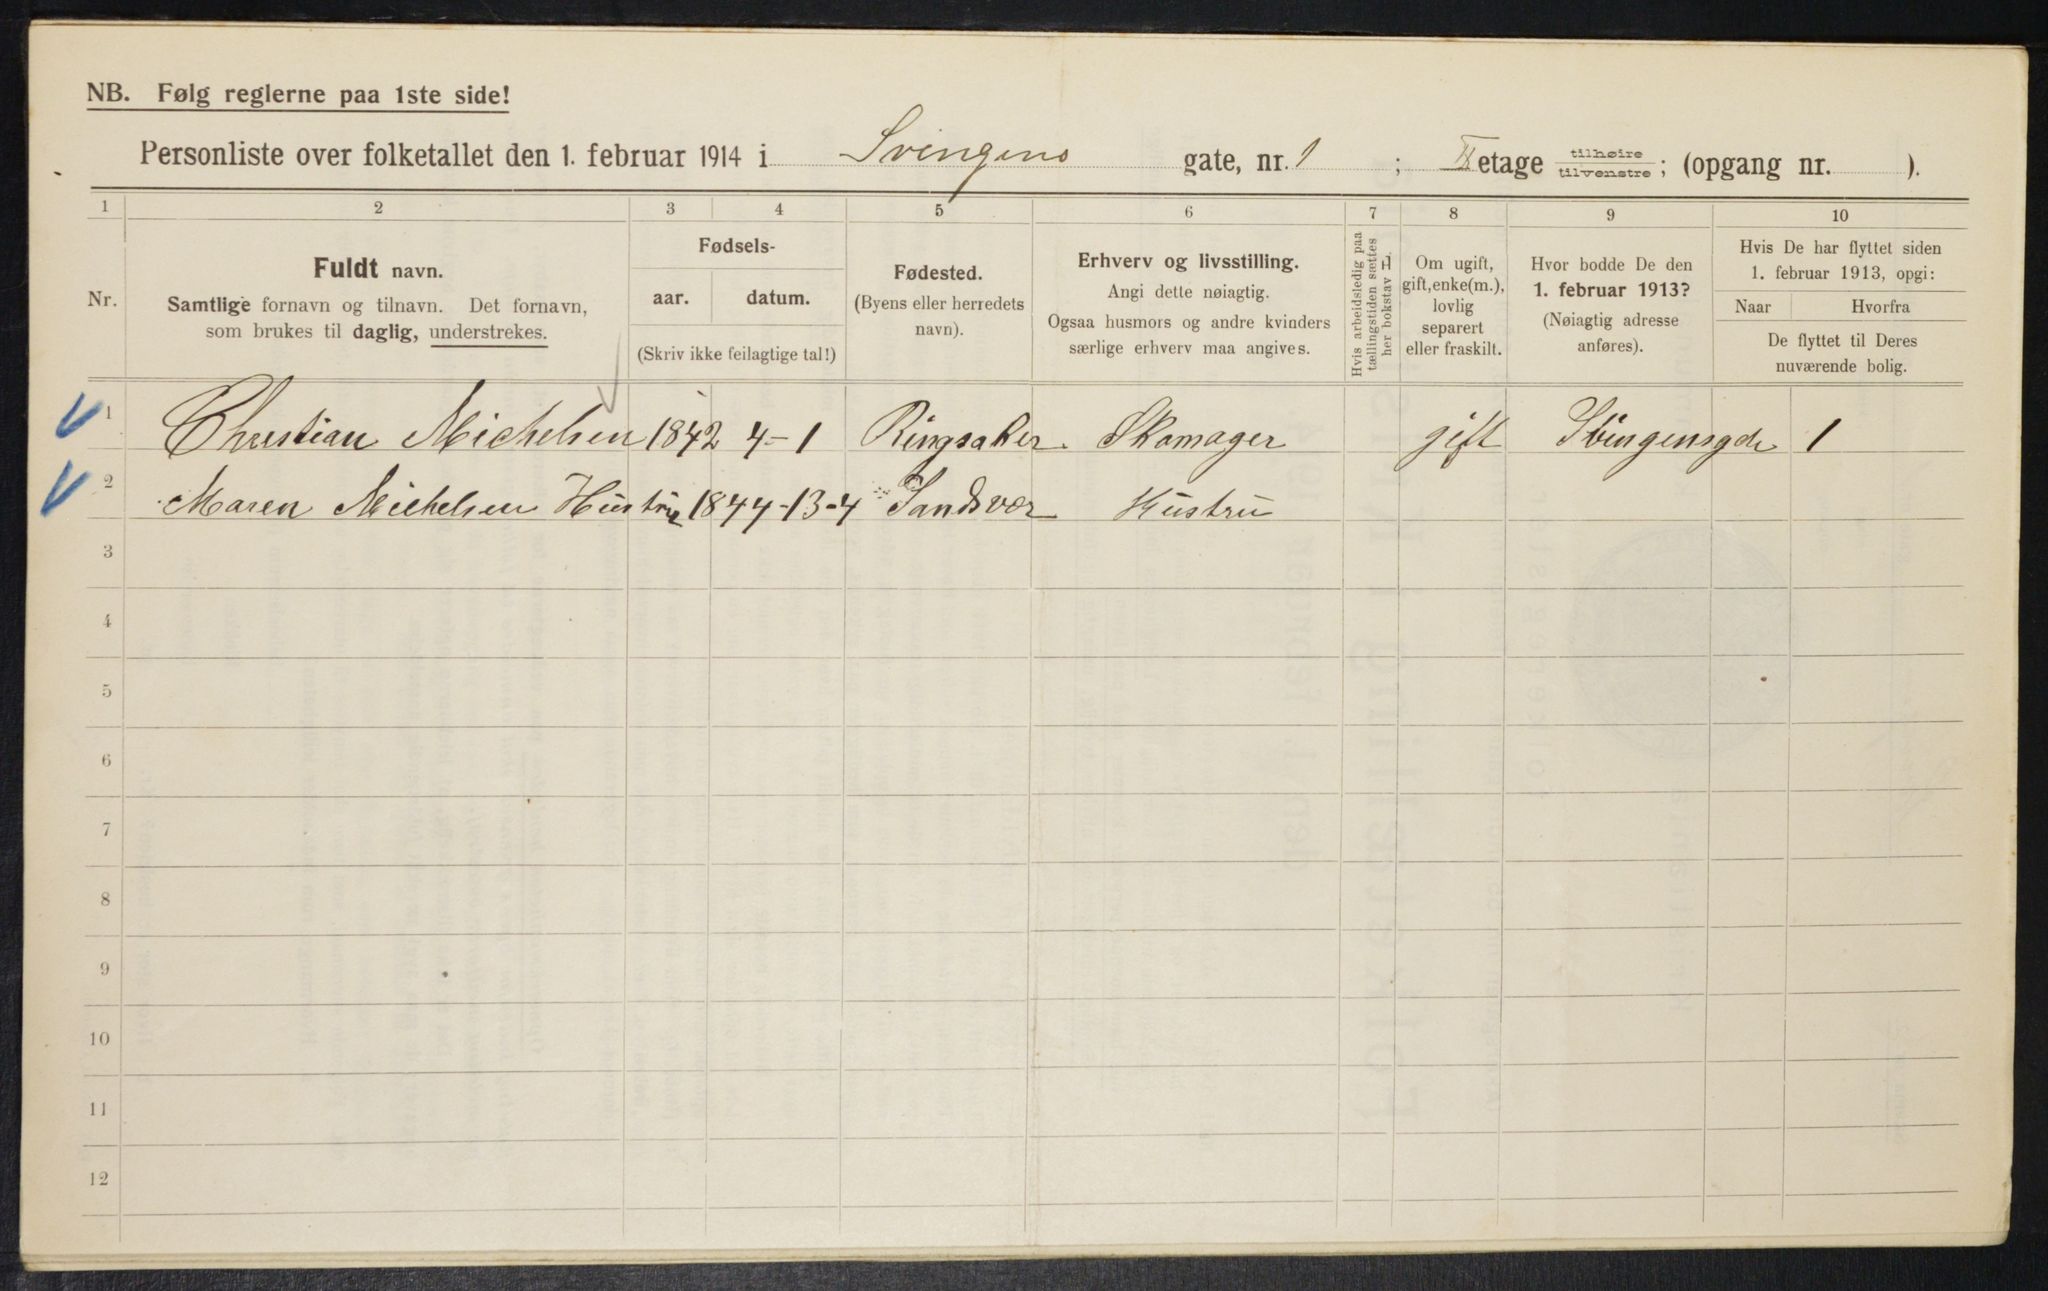 NB. Følg reglerne paa 1ste side!
Personliste over folketallet den 1. februar 1914 i Svingens gate, nr. 1 ; II etage tilhøire tilvenstre; (opgang nr. ).
1 2 3 4 5 6 7 8 9 10
Nr.
Fuldt navn.
Samtlige fornavn og tilnavn. Det fornavn,
som brukes til daglig, understrekes.
Fødsels-
aar. datum.
(Skriv ikke feilagtige tal!)
Fødested.
(Byens eller herredets
navn).
Erhverv og livsstilling.
Angi dette nøiagtig.
Ogsaa husmors og andre kvinders
særlige erhverv maa angives.
Hvis arbeidsledig paa
tællingstiden sættes
her bokstav L.
Om ugift,
gift, enke(m.),
lovlig
separert
eller fraskilt.
Hvor bodde De den
1. februar 1913?
(Nøiagtig adresse
anføres).
Hvis De har flyttet siden
1. februar 1913, opgi:
Naar Hvorfra
De flyttet til Deres
nuværende bolig.
1 Christian Michelsen 1842 4-1 Ringsaker Skomager gift Svingensgde 1
2 Maren Michelsen Hustru 1844-13-4 Sandsvær Hustru
3
4
5
6
7
8
9
10
11
12